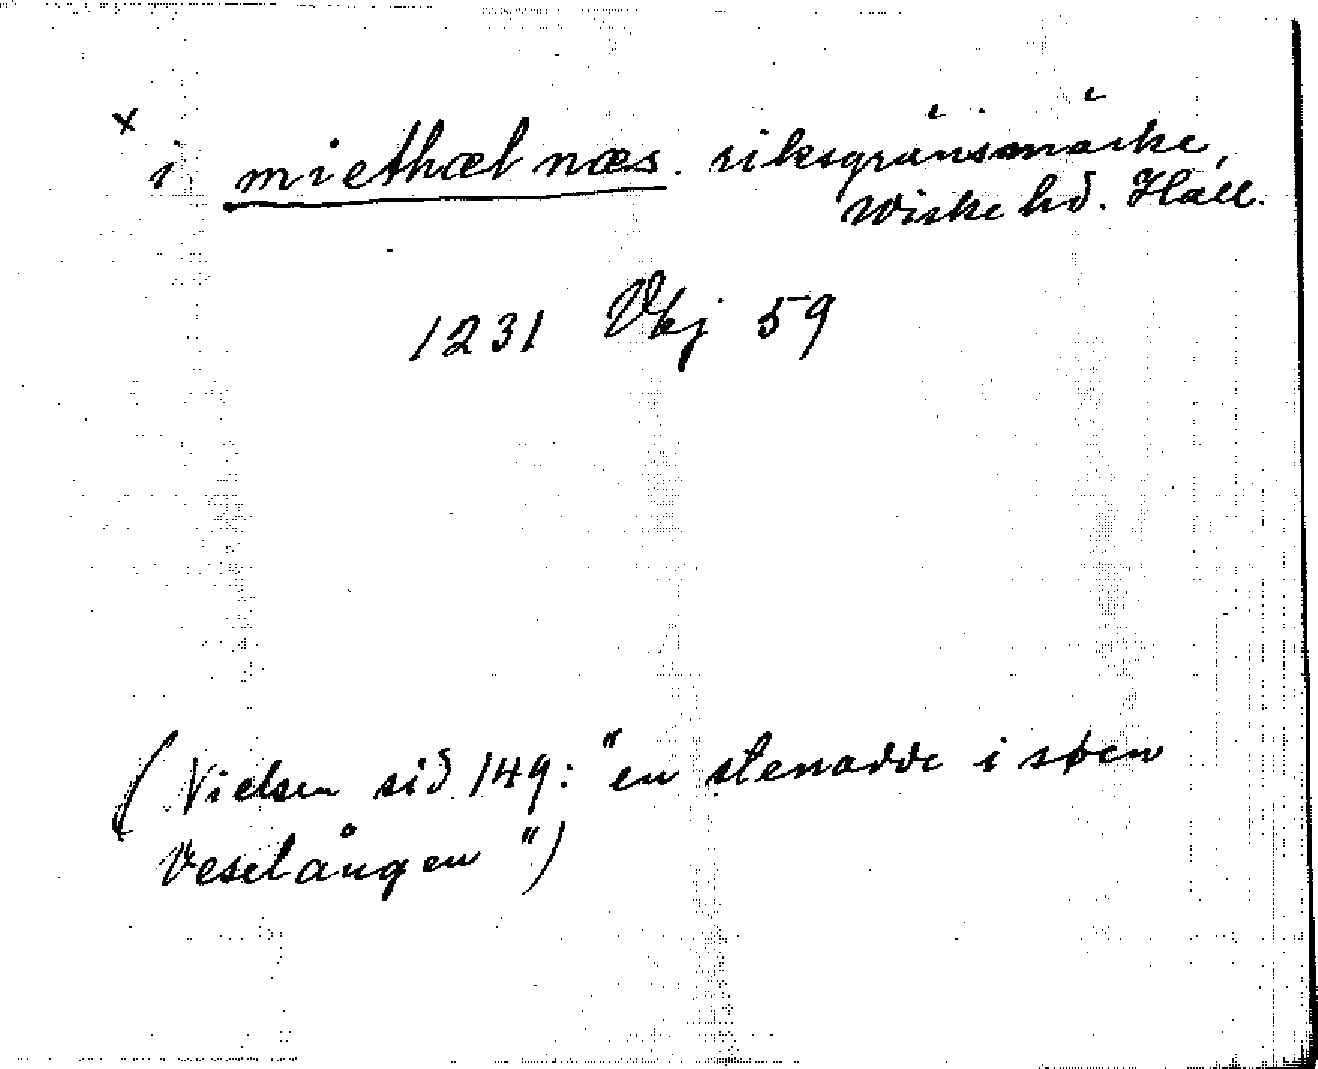 x i miethæl næs. riksgränsmärke,
Wiske hd. Hall.
1231 Vbj 59
(Nielsen sid 149: "en stenodde i søen
Veselången")